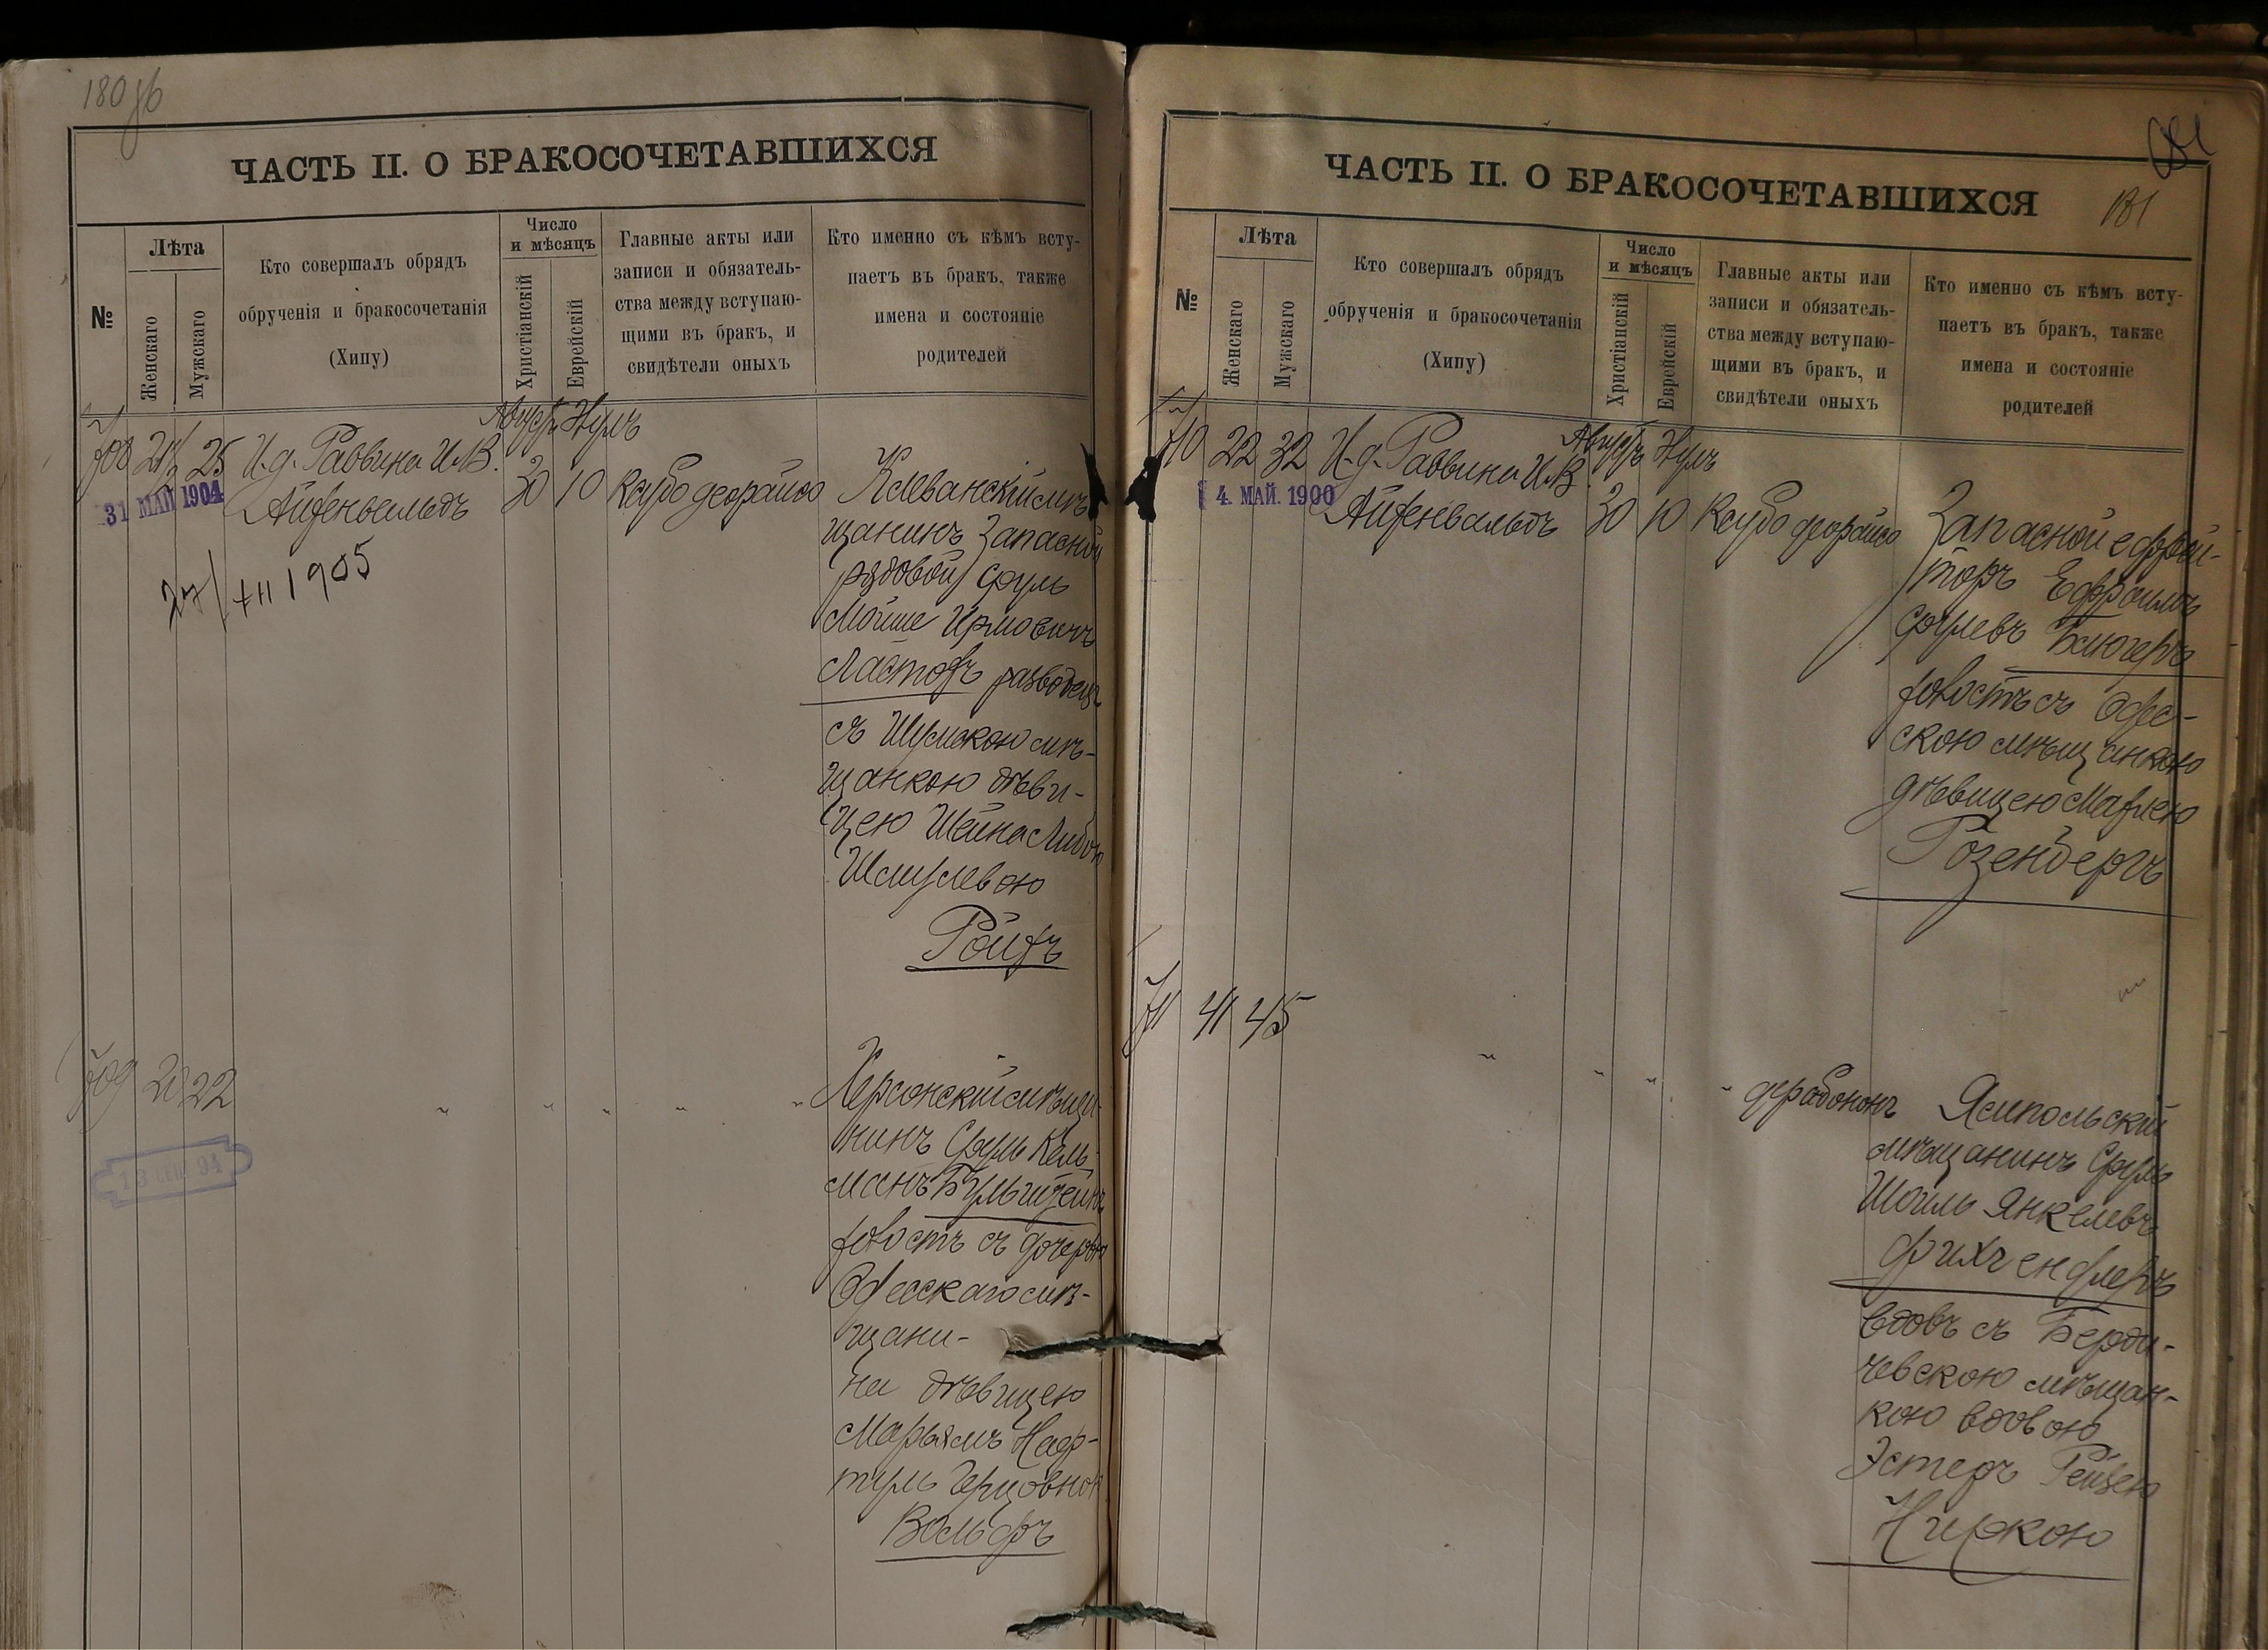 180 об
ЧАСТЬ II. О БРАКОСОЧЕТАВШИХСЯ
№
Лѣта
Женскаго
Мужскаго
Кто совершалъ обрядъ
обрученія и бракосочетанія
(Хипу)
Число
и мѣсяцъ
Христіанскій
Еврейскій
Главные акты или
записи и обязатель-
ства между вступаю-
щими въ бракъ, и
свидѣтели оныхъ
Кто именно съ кѣмъ всту-
паетъ въ бракъ, также
имена и состояніе
родителей
Августъ
708 21½ 25 И.д. Раввина И.В.
Айзенвальдъ
30 10 Ксубо деорайсо
31 МАЙ 1904
27/XII 1905
Клеванскій мѣ-
щанинъ запасной
рядовой Сруль
Мойше Ирмовичъ
разводецъ
съ Шумскою мѣ-
щанкою дѣви-
цею Шейна Либою
Шмулевою
Ройзъ
709 20 22
Херсонскій мѣща-
нинъ Сруль Кель-
манъ
холостъ съ дочерью
Одесскаго мѣ-
щани-
на дѣвицею
Марьямъ Наф-
туль Герцовною
Вольфъ
181
ЧАСТЬ II. О БРАКОСОЧЕТАВШИХСЯ
181
№
Лѣта
Женскаго
Мужскаго
Кто совершалъ обрядъ
обрученія и бракосочетанія
(Хипу)
Число
и мѣсяцъ
Христіанскій
Еврейскій
Главные акты или
записи и обязатель-
ства между вступаю-
щими въ бракъ, и
свидѣтели оныхъ
Кто именно съ кѣмъ всту-
паетъ въ бракъ, также
имена и состояніе
родителей
Августъ
710 22 32 И.д. Раввина И.В.
Айзенвальдъ
30 10 Ксубо деорайсо
4. МАЙ. 1900
Запасной ефрей-
торъ Ефроимъ
Срулевъ Блюгеръ
холостъ съ Одес-
скою мѣщанкою
дѣвицею
Розенбергъ
711 41 45
дерабононъ
Ямпольскій
мѣщанинъ Сруль
Шоиль Янкелевъ
вдовъ съ Берди-
чевскою мѣщан-
кою вдовою
Эстеръ Рейзею